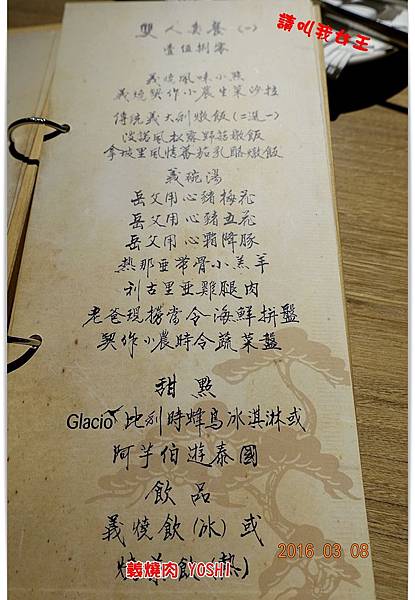 請叫我女王
雙人套餐(一)
壹伍捌零
義燒風味小點
義燒契作小農生菜沙拉
傳統義大利燉飯(二選一)
波諾風松露野菇燉飯
拿坡里風情蕃茄乳酪燉飯
義碗湯
岳父用心豬梅花
岳父用心豬五花
岳父用心霜降豚
熱那亞帶骨小羔羊
利古里亞雞腿肉
老爸現撈當令海鮮拼盤
契作小農時令蔬菜盤
甜點
Glacio 比利時蜂鳥冰淇淋或
阿芋伯遊泰國
飲品
義燒飲(冰)或
燒義飲(熱)
2016 03 08
義燒肉 YOSHI